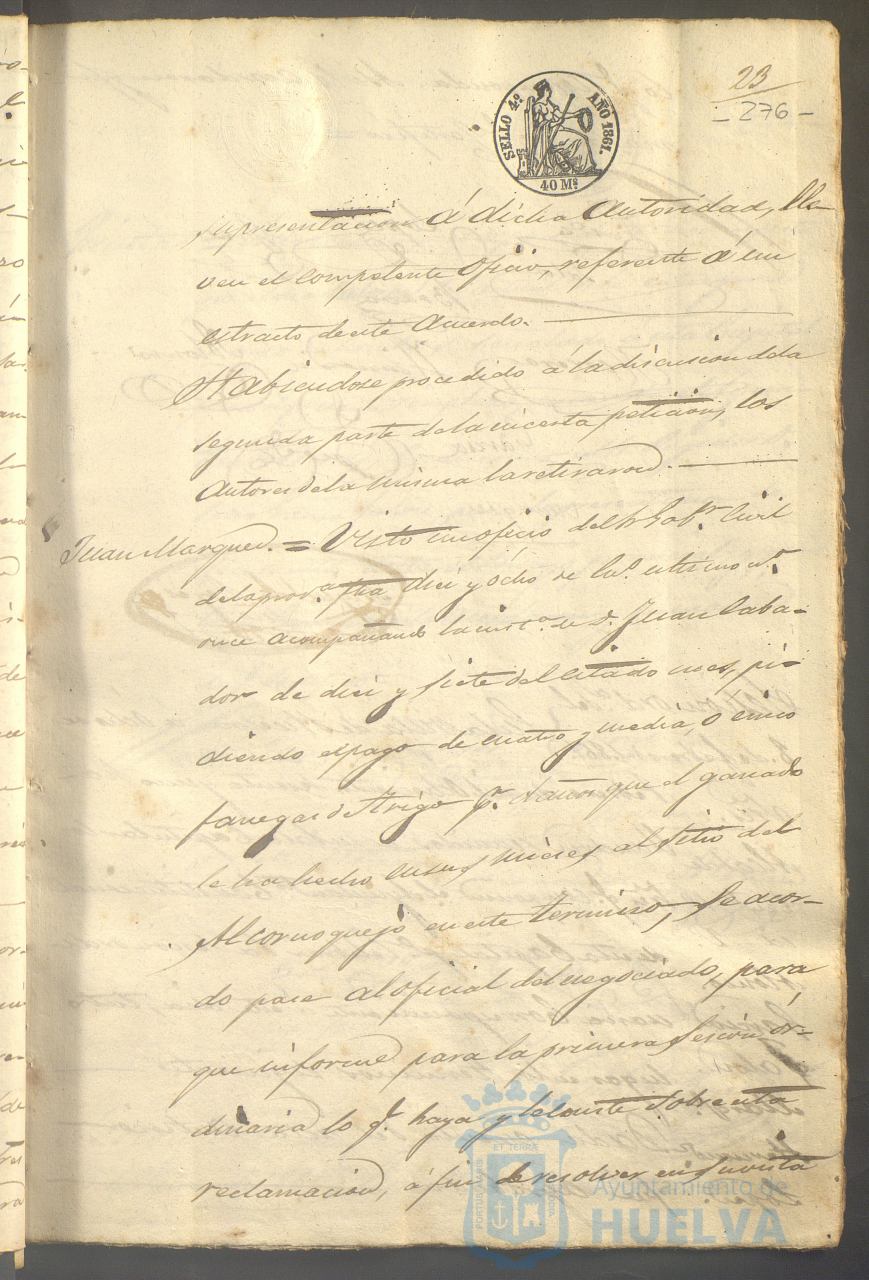 23
- 276 -
SELLO 4º AÑO 1861.
40 Ms
representacion á dicha Autoridad, lle-
ven el competente Oficio, referente á un
estracto de este Acuerdo.
Habiendose procedido á la discusion dela
segunda parte de la incerta peticion, los
Autores de la misma la retiraron.
Juan Marquez. = Visto un oficio del Sr Gobr. Civil
dela prova. fha diez y ocho de
once acompañando la insta. de D. Juan Laba-
dor de diez y siete del citado mes, pi-
diendo el pago de cuatro y media, o cinco
fanegas de trigo pr. daños que el ganado
le ha hecho en sus mieses al sitio del
Alcornoquejo en este termino, Se acor-
do pase al oficial del negociado, para
que informe para la primera sesion or-
dinaria lo q. haya y le conste sobre esta
reclamacion, á fin de resolver en su vista
ET TERRÆ
PORTUS MARIS
CUSTODIA
Ayuntamiento de
HUELVA